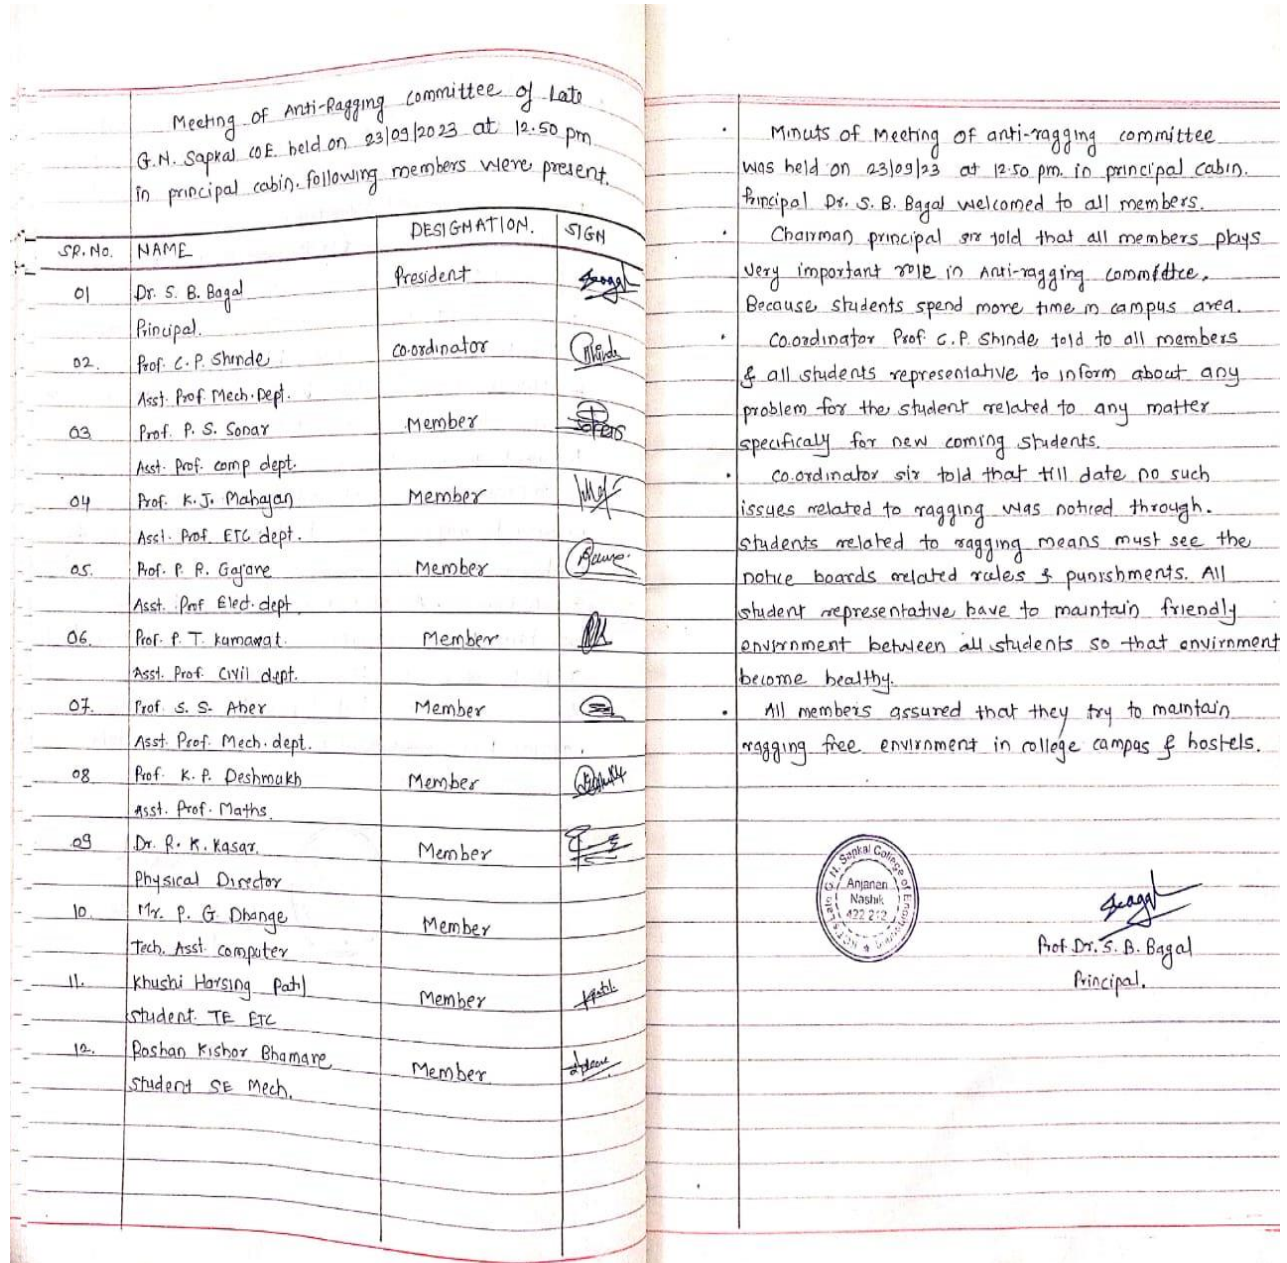 Meeting of Anti-Ragging committee of Late
G.N. Sapkal COE. held on 23/09/2023 at 12.50 pm
in principal cabin. following members were present.
SR.No. NAME DESIGNATION. SIGN
01 Dr. S. B. Bagal President
Principal.
02. Prof. C. P. Shinde Co-ordinator
Asst. Prof. Mech. Dept.
03 Prof. P. S. Sonar Member
Asst. Prof. comp dept.
04 Prof. K. J. Mahajan Member
Asst. Prof. ETC dept.
05. Prof. P. R. Gajare Member
Asst. Prof Elect. dept
06. Prof. P. T. Kumawat. Member
Asst. Prof. Civil dept.
07. Prof. S. S. Aher Member
Asst. Prof. Mech. dept.
08 Prof. K. P. Deshmukh Member
Asst. Prof. Maths.
09 Dr. R. K. Kasar. Member
Physical Director
10. Mr. P. G. Dhange Member
Tech. Asst. computer
11. Khushi Harsing Patil Member
Student TE ETC
12. Roshan Kishor Bhamare Member
Student SE Mech.
Minuts of Meeting of anti-ragging committee
was held on 23/09/23 at 12.50 pm. in principal cabin.
Principal Dr. S. B. Bagal welcomed to all members.
Chairman principal sir told that all members plays
very important role in Anti-ragging committee.
Because students spend more time in campus area.
Co.ordinator Prof. C. P. Shinde told to all members
& all students representative to inform about any
problem for the student related to any matter
specificaly for new coming students.
Co.ordinator sir told that till date no such
issues related to ragging was noticed through.
students related to ragging means must see the
notice boards related rules & punishments. All
student representative have to maintain friendly
envirnment between all students so that envirnment
become healthy.
All members assured that they try to maintain
ragging free envirnment in college campus & hostels.
Late G. N. Sapkal College of Engineering
Anjaneri
Nashik
422 212
Prof. Dr. S. B. Bagal
Principal.